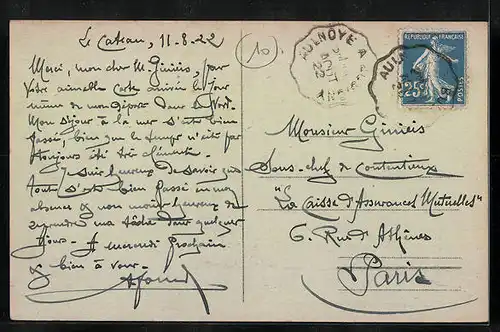 Le Cateau, 11-8-22
Merci, mon cher M. Giniès, pour
votre aimable carte arrivée le jour
même de mon départ dans le Nord.
Mon séjour à la mer s'est bien
passé, bien que le temps n'ait pas
toujours été très clément.
Je suis heureux de savoir que
tout s'est bien passé en mon
absence & non moins heureux de
reprendre ma tâche dans quelques
jours. - A mercredi prochain
& bien à vous.
10
AULNOYE A
AOUT
22
AULN
REPUBLIQUE FRANÇAISE
25c
POSTES
Monsieur Giniès
Sous-chef de Contentieux
"La Caisse d'Assurances Mutuelles"
6. Rue d'Athènes
Paris